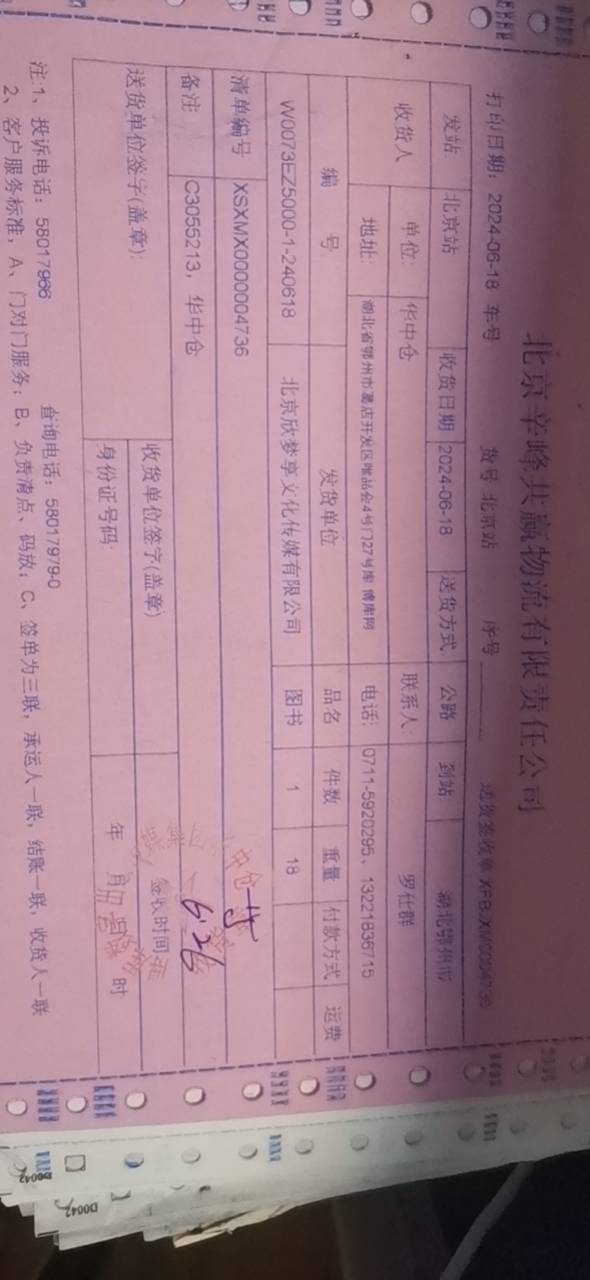 北京辛峰共赢物流有限责任公司
打印日期: 2024-06-18 车号 货号 北京站 序号
发站 北京站 收货日期 2024-06-18 送货方式 公路 到站 湖北鄂州市
收货人 单位: 华中仓 联系人: 罗仕群
地址: 湖北省鄂州市葛店开发区唯品会4号门27号库 博库网 电话: 0711-5920295、13221836715
编 号 发货单位 品名 件数 重量 付款方式 运费
W0073EZ5000-1-240618 北京欣梦享文化传媒有限公司 图书 1 18
清单编号 XSXMX0000004736
备注: C3055213, 华中仓
6.26
送货单位签字(盖章): 收货单位签字(盖章) 签收时间
身份证号码: 年 月 日 时
注:1、投诉电话: 58017966 查询电话: 58017979-0
2、客户服务标准, A、门对门服务; B、负责清点、码放; C、签单为三联, 承运人一联, 结账一联, 收货人一联
D0042
D0042